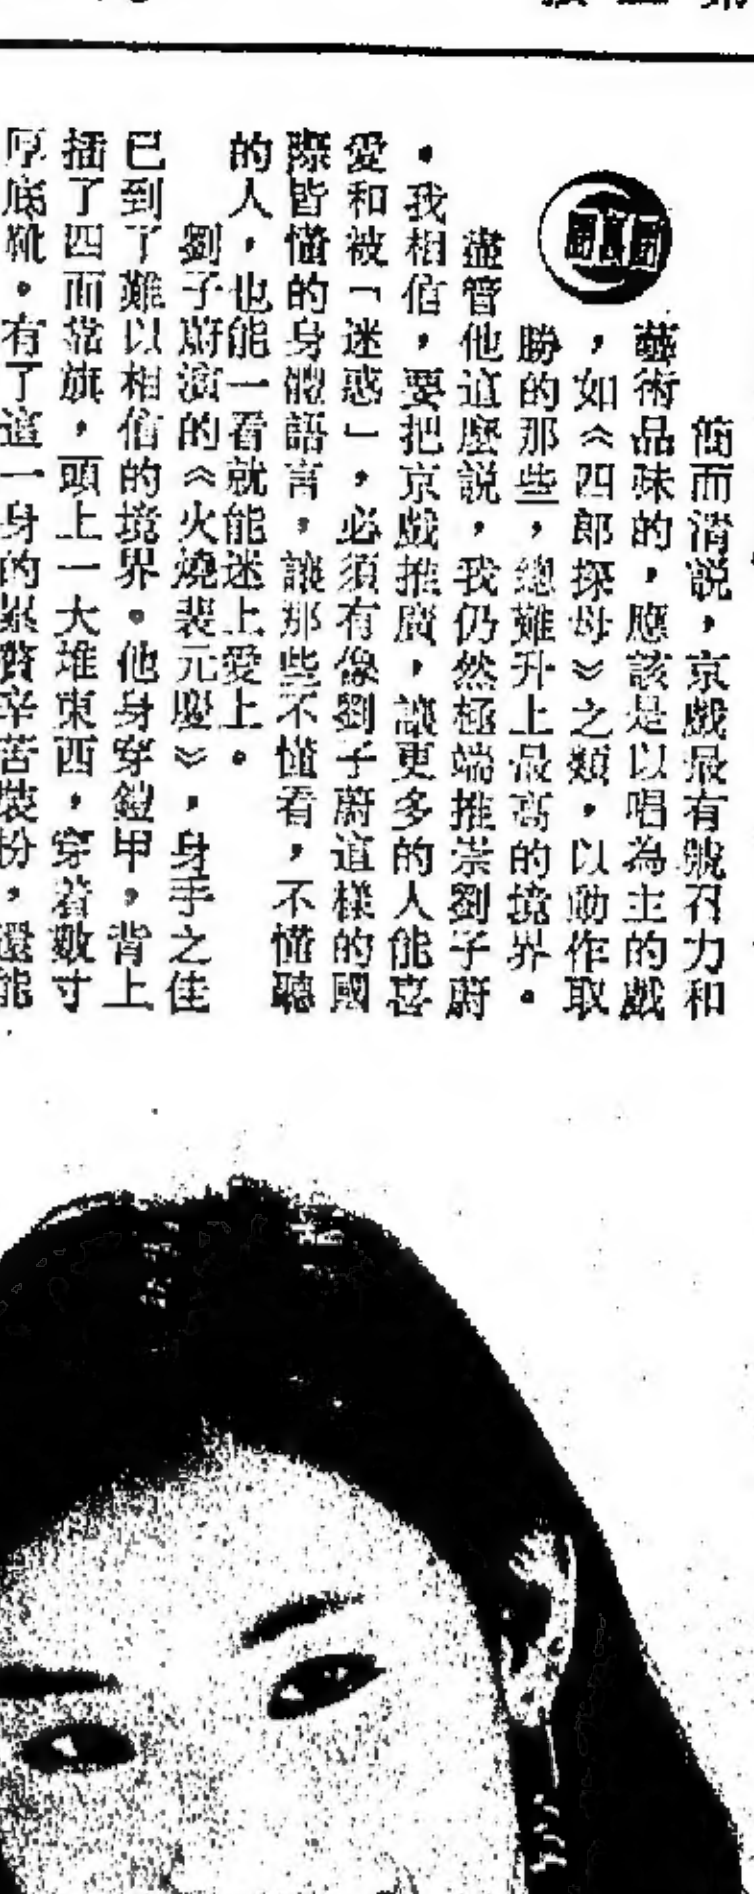 簡而淸說，京戲最有號召力和
藝術品味的，應該是以唱為主的戲
，如《四郎探母》之類，以動作取
勝的那些，總難升上最高的境界。
盡管他這麼說，我仍然極端推崇劉子蔚
。我相信，要把京戲推廣，讓更多的人能喜
愛和被「迷惑」，必須有像劉子蔚這樣的國
際皆懂的身體語言，讓那些不懂看，不懂聽
的人，也能一看就能迷上愛上。
劉子蔚演的《火燒裴元慶》，身手之佳
已到了難以相信的境界。他身穿鎧甲，背上
插了四面靠旗，頭上一大堆東西，穿着數寸
厚底靴。有了這一身的累贅辛苦裝扮，還能